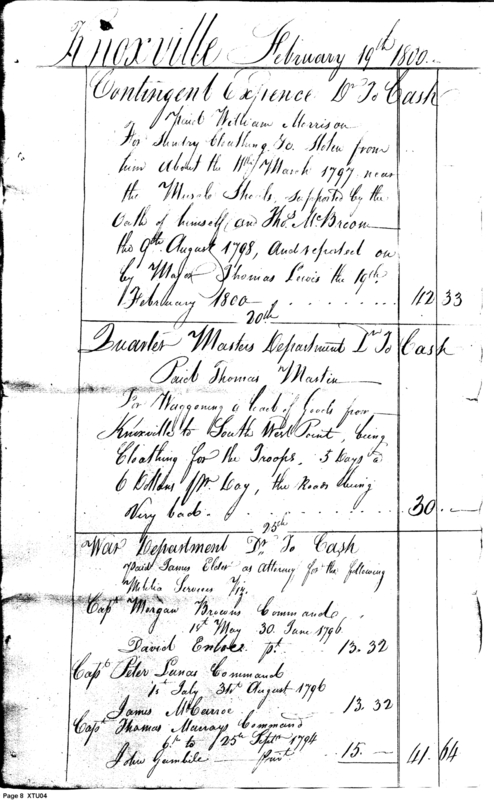 Knoxville February 19th 1800
Contingent Expence Dr To Cash
Paid William Morrison
For Sundry Cloathing &c Stolen from
him about the March 1797 near
the Muscle Shoals, supported by the
Oath of himself and Thos. McBroom
the 9th August 1798, and reported on
by Major Thomas Lewis the 19th
February 1800 42 33
20th
Quarter Masters Department Dr To Cash
Paid Thomas Martin
For Waggoning a load of Goods from
Knoxville to South West Point, being
Cloathing for the Troops, 5 Days @
6 Dollars pr. Day, the Roads being
Very bad. 30 —
25th
War Department Dr To Cash
Paid James Elder as Attorney for the following
Militia Services Viz.
Capt Morgan Browns Command
1st May 30 June 1796
David pt. 13.32
Capt. Peter Command
1st July 31st August 1796
James McCarroe 13 32
Capt Thomas Murrays Command
6th to 25th Septr 1794
John Gambile 15.— 41 64
Page 8 XTU04